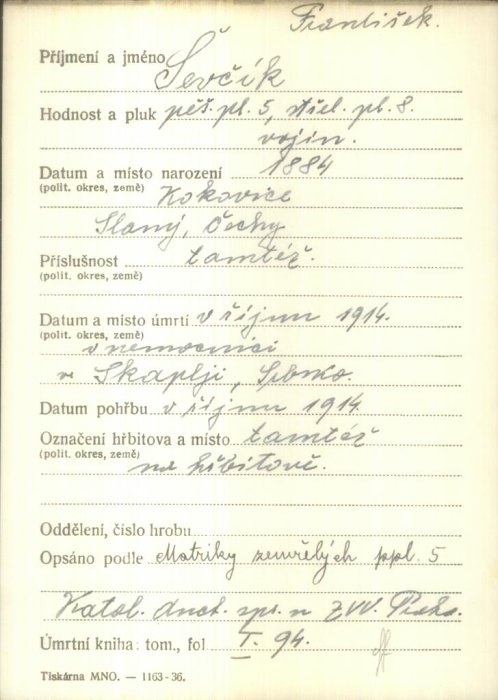 František.
Příjmení a jméno Ševčík
Hodnost a pluk pěš. pl. 5, střel. pl. 8.
vojín.
Datum a místo narození 1884
(polit. okres, země) Kokovice
Slaný, Čechy
Příslušnost tamtéž.
(polit. okres, země)
Datum a místo úmrtí v říjnu 1914.
(polit. okres, země) v nemocnici
v Skaplji, Srbsko.
Datum pohřbu v říjnu 1914
Označení hřbitova a místo tamtéž
(polit. okres, země) na hřbitově.
Oddělení, číslo hrobu
Opsáno podle Matriky zemřelých ppl. 5
Katol. duch. spr. u ZVV. Praha.
Úmrtní kniha: tom., fol I. 94.
Tiskárna MNO. — 1163-36.